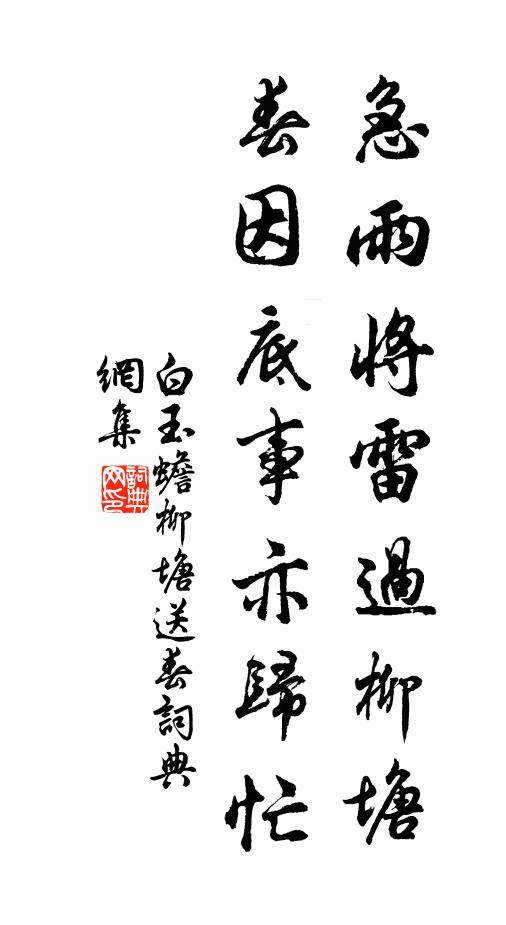 急雨將雷過柳塘
春因底事亦歸忙
白玉蟾柳塘送春詞典
網集
詞典
网印